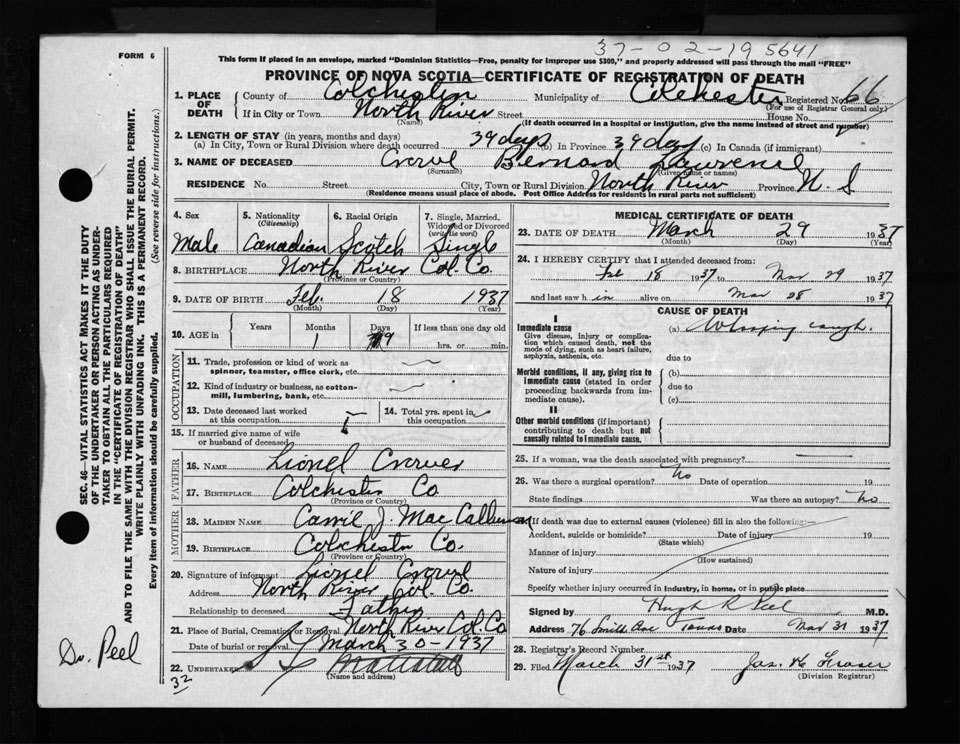 37-02-195641
FORM 6
This form if placed in an envelope, marked "Dominion Statistics—Free, penalty for improper use $300," and properly addressed will pass through the mail "FREE"
PROVINCE OF NOVA SCOTIA—CERTIFICATE OF REGISTRATION OF DEATH
1. PLACE OF DEATH County of Colchester Municipality of Colchester Registered No. 66
(For use of Registrar General only)
If in City or Town North River Street House No.
(Name) (If death occurred in a hospital or institution, give the name instead of street and number)
2. LENGTH OF STAY (in years, months and days)
(a) In City, Town or Rural Division where death occurred 39 days (b) In Province 39 days (c) In Canada (if immigrant)
3. NAME OF DECEASED Bernard Lawrence
(Surname) (Given name or names)
RESIDENCE No. Street City, Town or Rural Division North River Province N. S
(Residence means usual place of abode. Post Office Address for residents in rural parts not sufficient)
4. Sex Male
5. Nationality (Citizenship) Canadian
6. Racial Origin Scotch
7. Single, Married, Widowed or Divorced (write the word) Single
8. BIRTHPLACE North River Col. Co.
(Province or Country)
9. DATE OF BIRTH Feb. 18 1937
(Month) (Day) (Year)
10. AGE in Years Months Days If less than one day old
1 9 hrs. or min.
OCCUPATION
11. Trade, profession or kind of work as spinner, teamster, office clerk, etc.
12. Kind of industry or business, as cotton-mill, lumbering, bank, etc.
13. Date deceased last worked at this occupation
14. Total yrs. spent in this occupation
15. If married give name of wife or husband of deceased
FATHER
16. NAME Lionel
17. BIRTHPLACE Colchester Co
(Province or Country)
MOTHER
18. MAIDEN NAME Carrie J. MacCallum
19. BIRTHPLACE Colchester Co.
(Province or Country)
20. Signature of informant Lionel
Address North River Col. Co.
Relationship to deceased Father
21. Place of Burial, Cremation or Removal North River Col. Co
Date of burial or removal March 30-1937
22. UNDERTAKER
(Name and address)
MEDICAL CERTIFICATE OF DEATH
23. DATE OF DEATH March 29 1937
(Month) (Day) (Year)
24. I HEREBY CERTIFY that I attended deceased from:
Feb 18 1937 to Mar 29 1937
and last saw h im alive on Mar 28 1937
CAUSE OF DEATH
I
Immediate cause
Give disease, injury or complication which caused death, not the mode of dying, such as heart failure, asphyxia, asthenia, etc.
(a) Whooping cough.
due to
Morbid conditions, if any, giving rise to immediate cause (stated in order proceeding backwards from immediate cause).
(b)
due to
(c)
II
Other morbid conditions (if important) contributing to death but not causally related to immediate cause.
25. If a woman, was the death associated with pregnancy?
26. Was there a surgical operation? No Date of operation 19
State findings Was there an autopsy? No
27. If death was due to external causes (violence) fill in also the following:—
Accident, suicide or homicide? Date of injury 19
(State which)
Manner of injury
(How sustained)
Nature of injury
Specify whether injury occurred in industry, in home, or in public place
Signed by Hugh R Peel M.D.
Address 76 Date Mar 31 1937
28. Registrar's Record Number
29. Filed March 31st 1937 Jas. W. Fraser
(Division Registrar)
SEC. 46—VITAL STATISTICS ACT MAKES IT THE DUTY
OF THE UNDERTAKER OR PERSON ACTING AS UNDER-
TAKER TO OBTAIN ALL THE PARTICULARS REQUIRED
IN THE "CERTIFICATE OF REGISTRATION OF DEATH"
AND TO FILE THE SAME WITH THE DIVISION REGISTRAR WHO SHALL ISSUE THE BURIAL PERMIT.
WRITE PLAINLY WITH UNFADING INK. THIS IS A PERMANENT RECORD.
Every item of information should be carefully supplied. (See reverse side for instructions.)
Dr. Peel
32